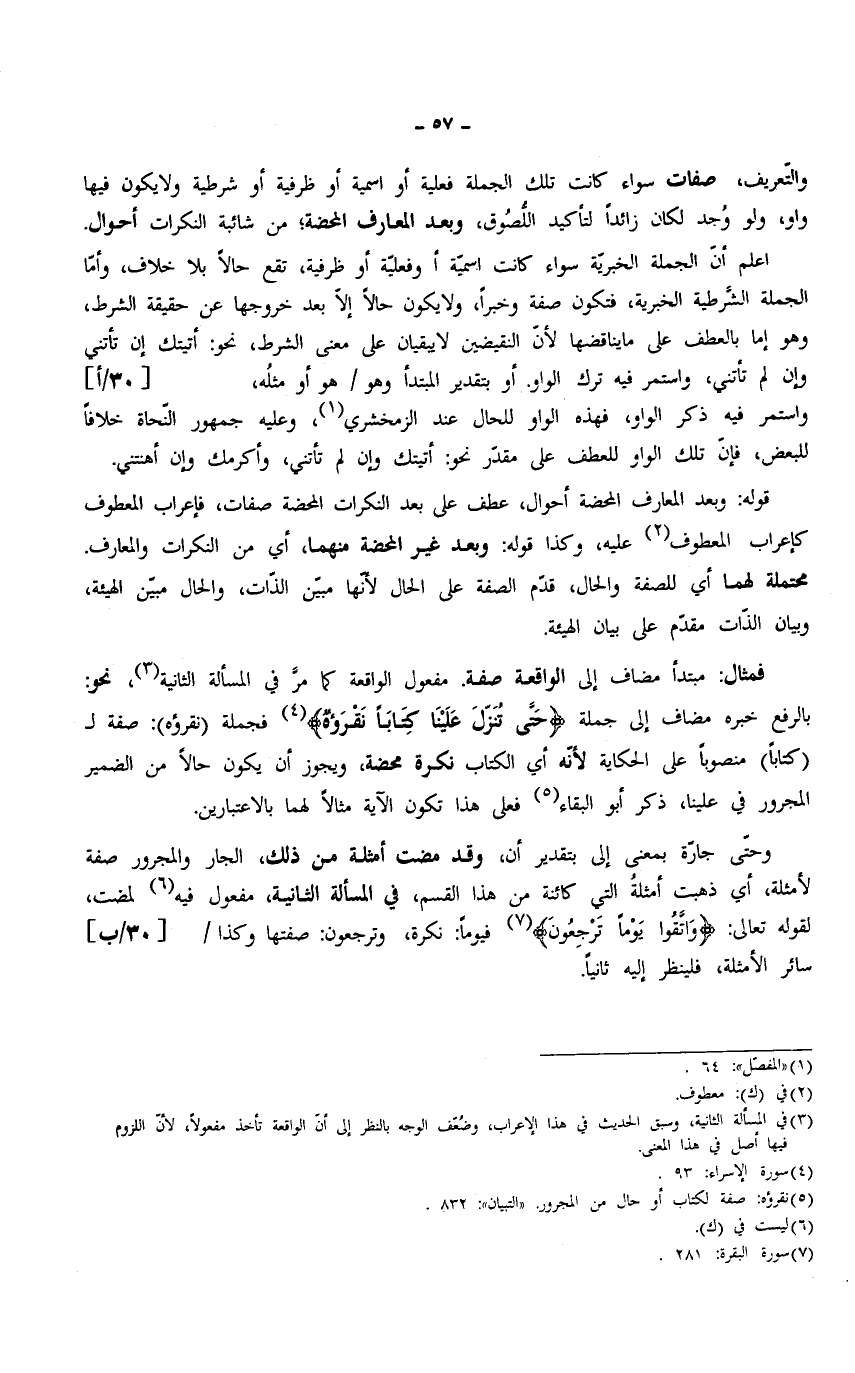 - ٥٧ -
والتّعريف، صفات سواء كانت تلك الجملة فعلية أو اسمية أو ظرفية أو شرطية ولايكون فيها
واو، ولو وُجد لكان زائداً لتأكيد اللُّصُوق، وبعد المعارف المحضة؛ من شائبة النكرات أحوال.
اعلم أنّ الجملة الخبريّة سواء كانت اسميّة أ وفعليّة أو ظرفية، تقع حالاً بلا خلاف، وأمّا
الجملة الشَّرطية الخبرية، فتكون صفة وخبراً، ولايكون حالاً إلاّ بعد خروجها عن حقيقة الشرط،
وهو إما بالعطف على مايناقضها لأنّ النقيضين لايبقيان على معنى الشرط، نحو: أتيتك إن تأتني
وإن لم تأتني، واستمر فيه ترك الواو. أو بتقدير المبتدأ وهو / هو أو مثلُه، [٣٠/أ]
واستمر فيه ذكر الواو، فهذه الواو للحال عند الزمخشري(١)، وعليه جمهور النّحاة خلافاً
للبعض، فإنّ تلك الواو للعطف على مقدّر نحو: أتيتك وإن لم تأتني، وأكرمك وإن أهنتني.
قوله: وبعد المعارف المحضة أحوال، عطف على بعد النكرات المحضة صفات، فإعراب المعطوف
كإعراب المعطوف(٢) عليه، وكذا قوله: وبعد غير المحضة منهما، أي من النكرات والمعارف.
محتملة لهما أي للصفة والحال، قدّم الصفة على الحال لأنّها مبيّن الذّات، والحال مبيّن الهيئة،
وبيان الذّات مقدّم على بيان الهيئة.
فمثال: مبتدأ مضاف إلى الواقعة صفة. مفعول الواقعة كما مرَّ في المسألة الثانية(٣)، نحو:
بالرفع خبره مضاف إلى جملة ﴿حَتَّى تُنَزِّلَ عَلَيْنَا كِتَابَاً نَقْرَؤهُ﴾(٤) فجملة (نقرؤه): صفة لـ
(كتاباً) منصوباً على الحكاية لأنّه أي الكتاب نكرة محضة، ويجوز أن يكون حالاً من الضمير
المجرور في علينا، ذكر أبو البقاء(٥) فعلى هذا تكون الآية مثالاً لهما بالاعتبارين.
وحتّى جارّة بمعنى إلى بتقدير أن، وقد مضت أمثلة من ذلك، الجار والمجرور صفة
لأمثلة، أي ذهبت أمثلةُ التي كائنة من هذا القسم، في المسألة الثانية، مفعول فيه(٦) لمضت،
لقوله تعالى: ﴿وَاتَّقُوا يَوْماً تَرْجِعُونَ﴾(٧) فيوماً: نكرة، وترجعون: صفتها وكذا / [٣٠/ب]
سائر الأمثلة، فلينظر إليه ثانياً.
(١) «المفصّل»: ٦٤ .
(٢) في (ك): معطوف.
(٣) في المسألة الثانية، وسبق الحديث في هذا الإعراب، وضُعّف الوجه بالنظر إلى أنّ الواقعة تأخذ مفعولاً، لأنّ اللزوم
فيها أصل في هذا المعنى.
(٤) سورة الإسراء: ٩٣ .
(٥) نقرؤه: صفة لكتاب أو حال من المجرور. «التبيان»: ٨٣٢ .
(٦) ليست في (ك).
(٧) سورة البقرة: ٢٨١ .